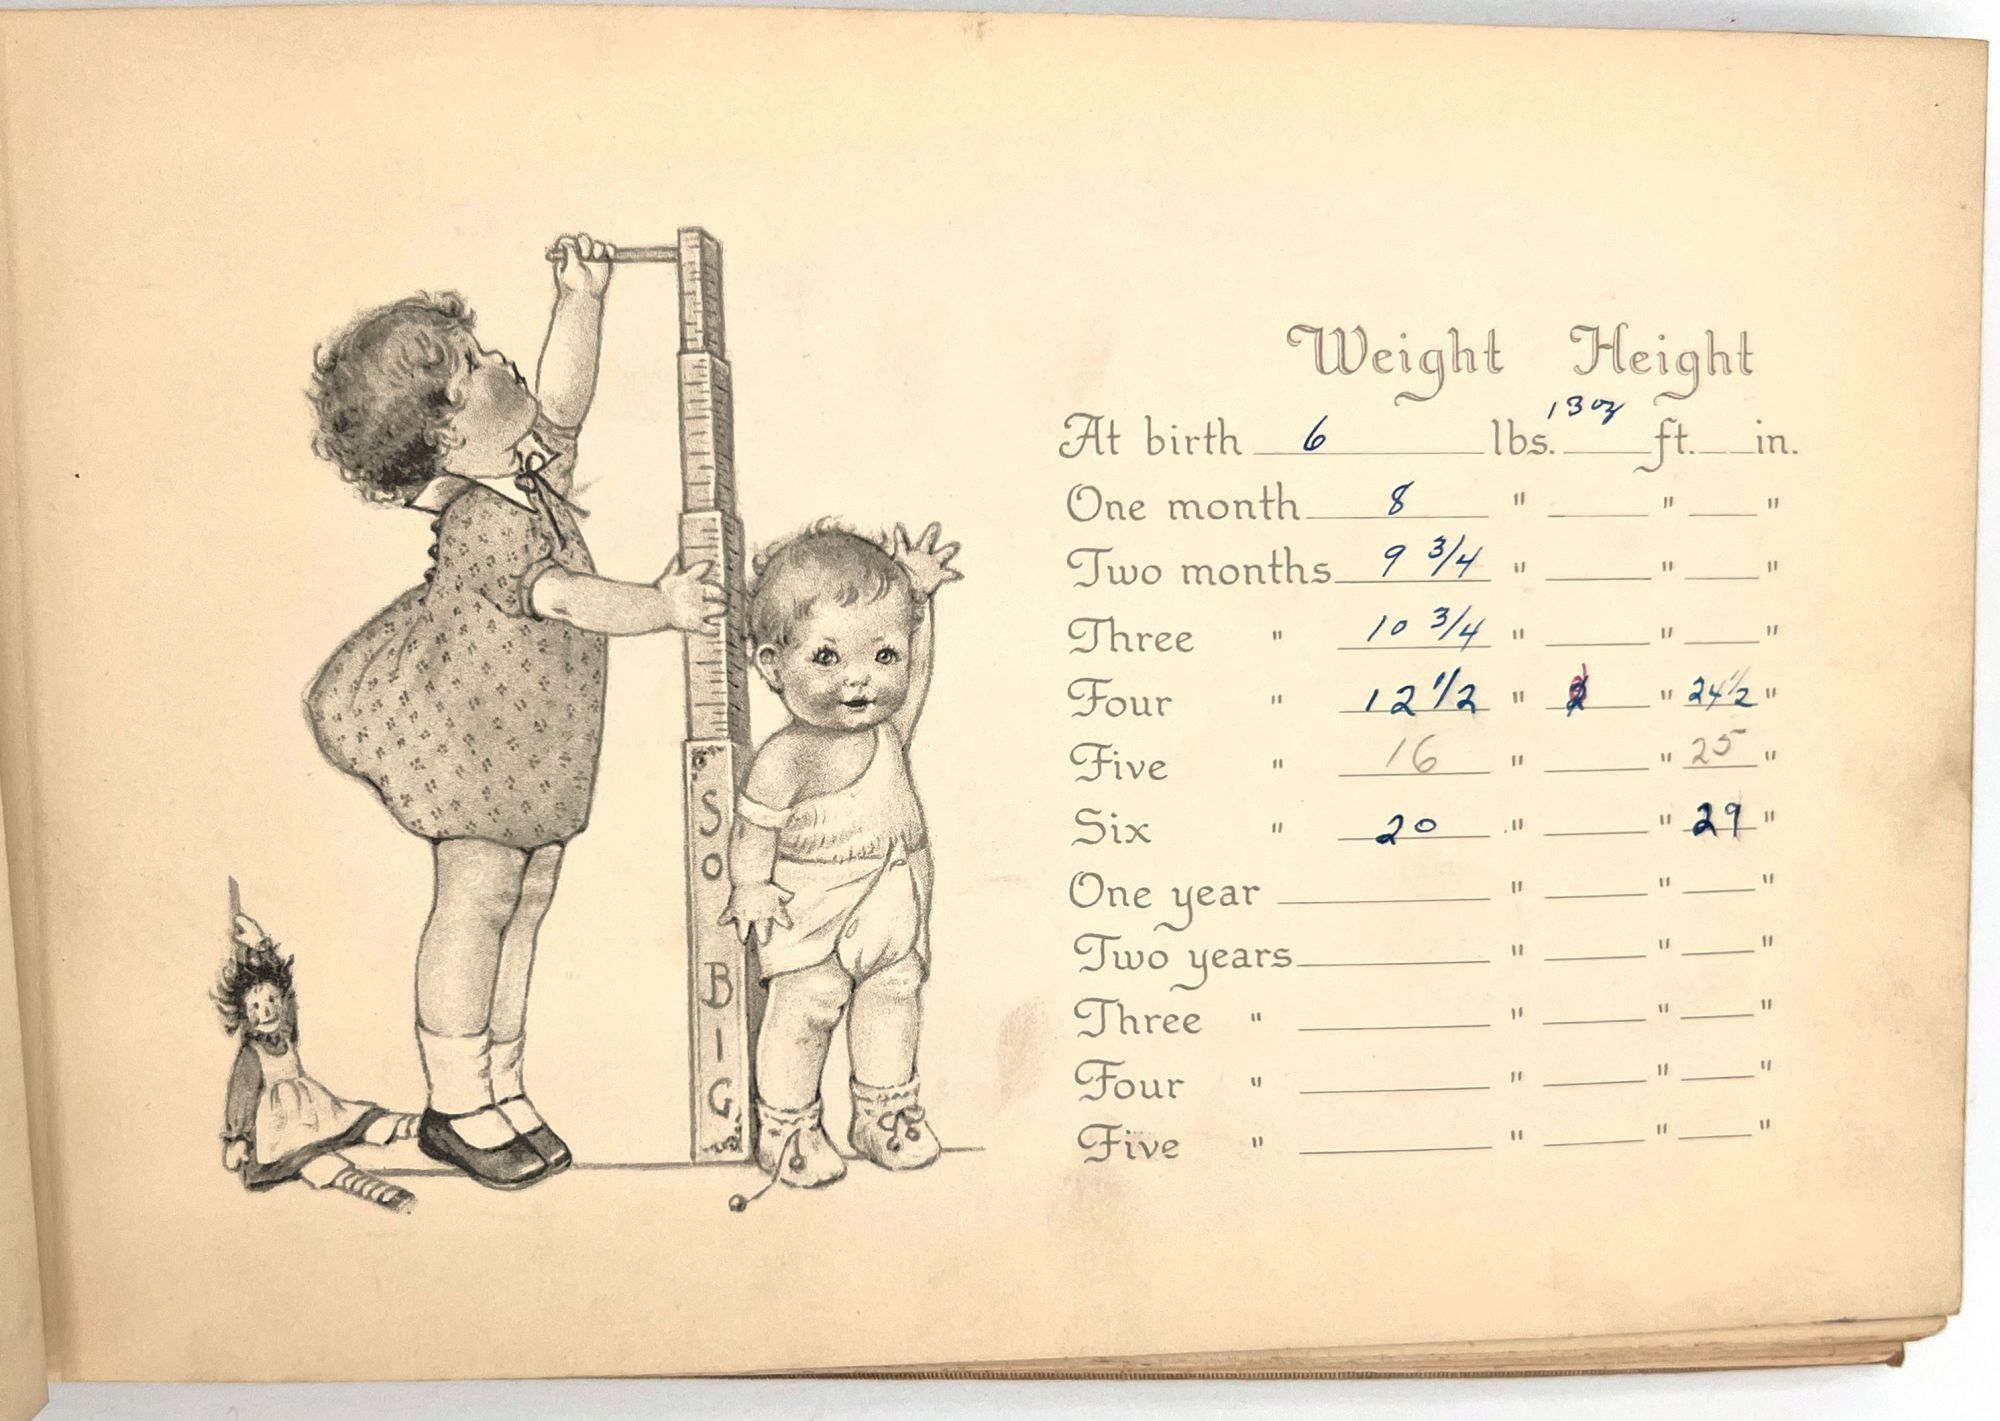 SO
BIG
Weight Height
At birth 6 lbs. 13 oz ft. in.
One month 8 " " "
Two months 9 3/4 " " "
Three " 10 3/4 " " "
Four " 12 1/2 " " 24 1/2 "
Five " 16 " " 25 "
Six " 20 " " 29 "
One year " " "
Two years " " "
Three " " " "
Four " " " "
Five " " " "